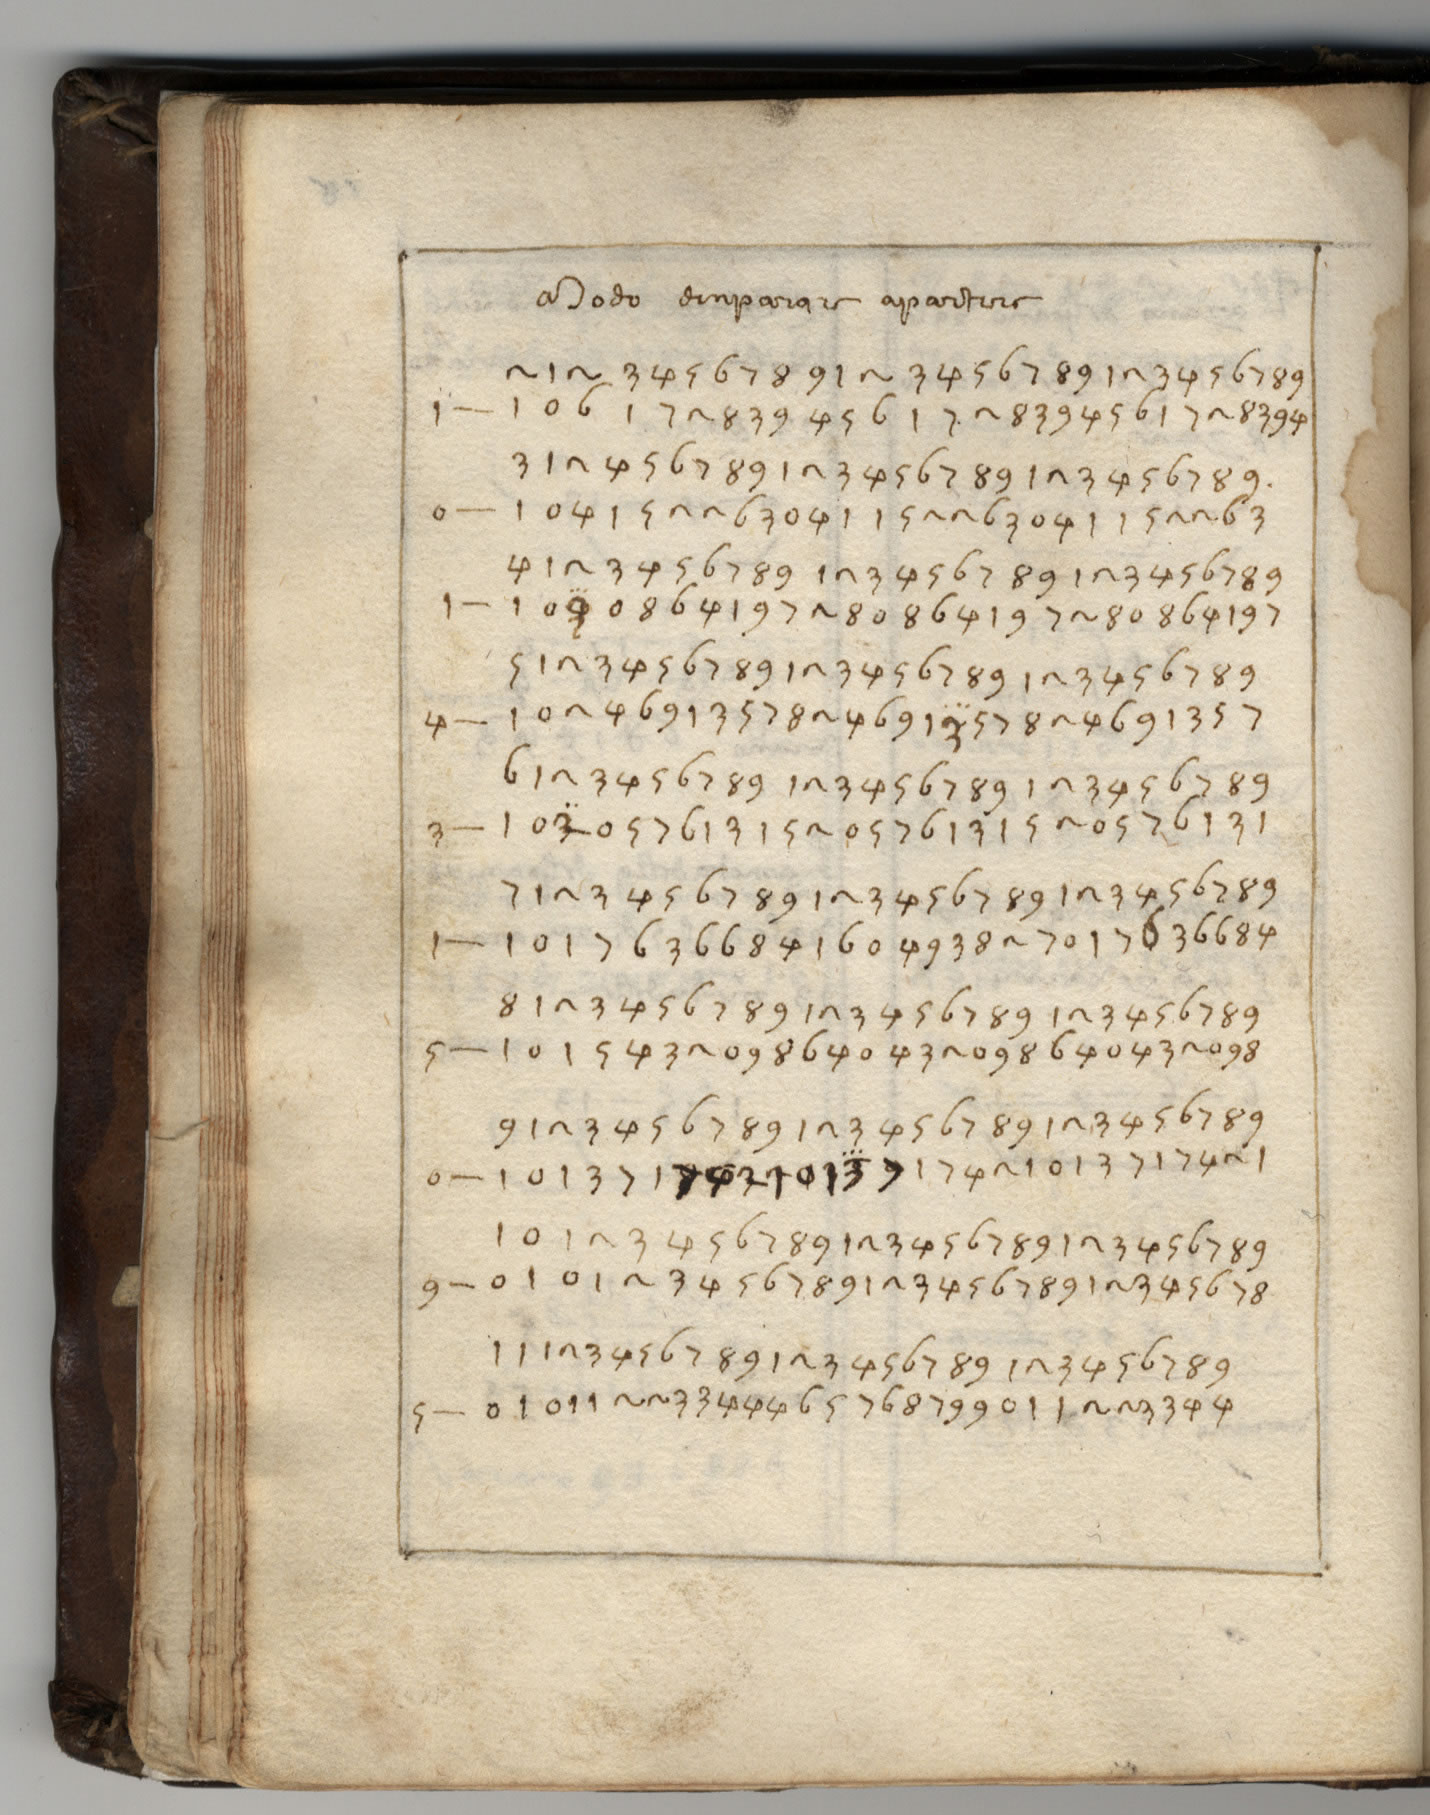 Modo dimparare apartire
2 1 2 3 4 5 6 7 8 9 1 2 3 4 5 6 7 8 9 1 2 3 4 5 6 7 8 9
1 — 1 0 6 1 7 2 8 3 9 4 5 6 1 7 2 8 3 9 4 5 6 1 7 2 8 3 9 4
3 1 2 4 5 6 7 8 9 1 2 3 4 5 6 7 8 9 1 2 3 4 5 6 7 8 9.
0 — 1 0 4 1 5 2 2 6 3 0 4 1 1 5 2 2 6 3 0 4 1 1 5 2 2 6 3
4 1 2 3 4 5 6 7 8 9 1 2 3 4 5 6 7 8 9 1 2 3 4 5 6 7 8 9
1 — 1 0 3 0 8 6 4 1 9 7 2 8 0 8 6 4 1 9 7 2 8 0 8 6 4 1 9 7
5 1 2 3 4 5 6 7 8 9 1 2 3 4 5 6 7 8 9 1 2 3 4 5 6 7 8 9
4 — 1 0 2 4 6 9 1 3 5 7 8 2 4 6 9 1 3 5 7 8 2 4 6 9 1 3 5 7
6 1 2 3 4 5 6 7 8 9 1 2 3 4 5 6 7 8 9 1 2 3 4 5 6 7 8 9
3 — 1 0 2 0 5 7 6 1 3 1 5 2 0 5 7 6 1 3 1 5 2 0 5 7 6 1 3 1
7 1 2 3 4 5 6 7 8 9 1 2 3 4 5 6 7 8 9 1 2 3 4 5 6 7 8 9
1 — 1 0 1 7 6 3 6 6 8 4 1 6 0 4 9 3 8 2 7 0 1 7 6 3 6 6 8 4
8 1 2 3 4 5 6 7 8 9 1 2 3 4 5 6 7 8 9 1 2 3 4 5 6 7 8 9
5 — 1 0 1 5 4 3 2 0 9 8 6 4 0 4 3 2 0 9 8 6 4 0 4 3 2 0 9 8
9 1 2 3 4 5 6 7 8 9 1 2 3 4 5 6 7 8 9 1 2 3 4 5 6 7 8 9
0 — 1 0 1 3 7 1 7 4 2 1 0 1 3 7 1 7 4 2 1 0 1 3 7 1 7 4 2 1
1 0 1 2 3 4 5 6 7 8 9 1 2 3 4 5 6 7 8 9 1 2 3 4 5 6 7 8 9
9 — 0 1 0 1 2 3 4 5 6 7 8 9 1 2 3 4 5 6 7 8 9 1 2 3 4 5 6 7 8
1 1 1 2 3 4 5 6 7 8 9 1 2 3 4 5 6 7 8 9 1 2 3 4 5 6 7 8 9
5 — 0 1 0 1 1 2 2 3 3 4 4 4 6 5 7 6 8 7 9 9 0 1 1 2 2 3 3 4 4